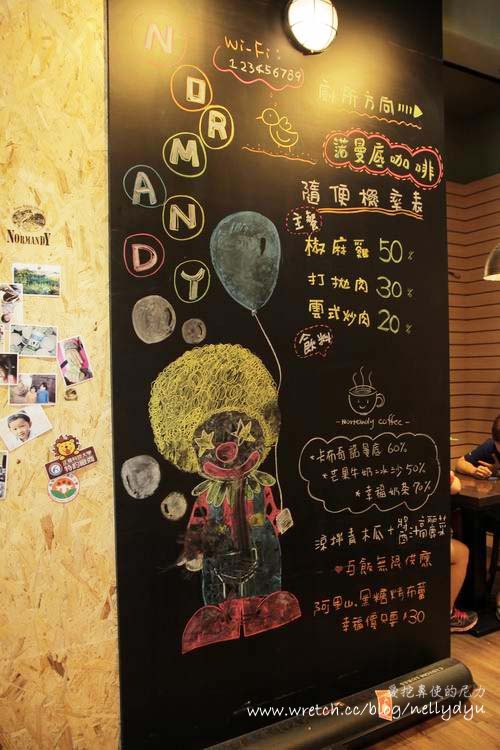 NORMANDY
Wi-Fi:
123456789
廁所方向
諾曼底咖啡
隨便機率表
主餐
椒麻雞 50%
打拋肉 30%
雲式炒肉 20%
飲料
normandy coffee
*卡布奇諾曼底 60%
*芒果牛奶冰沙 50%
*幸福奶茶 70%
涼拌青木瓜+醬汁高麗菜
白飯無限供應
阿里山.黑糖烤布蕾
幸福優只要$30
NORMANDY
愛挖鼻使的尼力
www.wretch.cc/blog/nellydyu